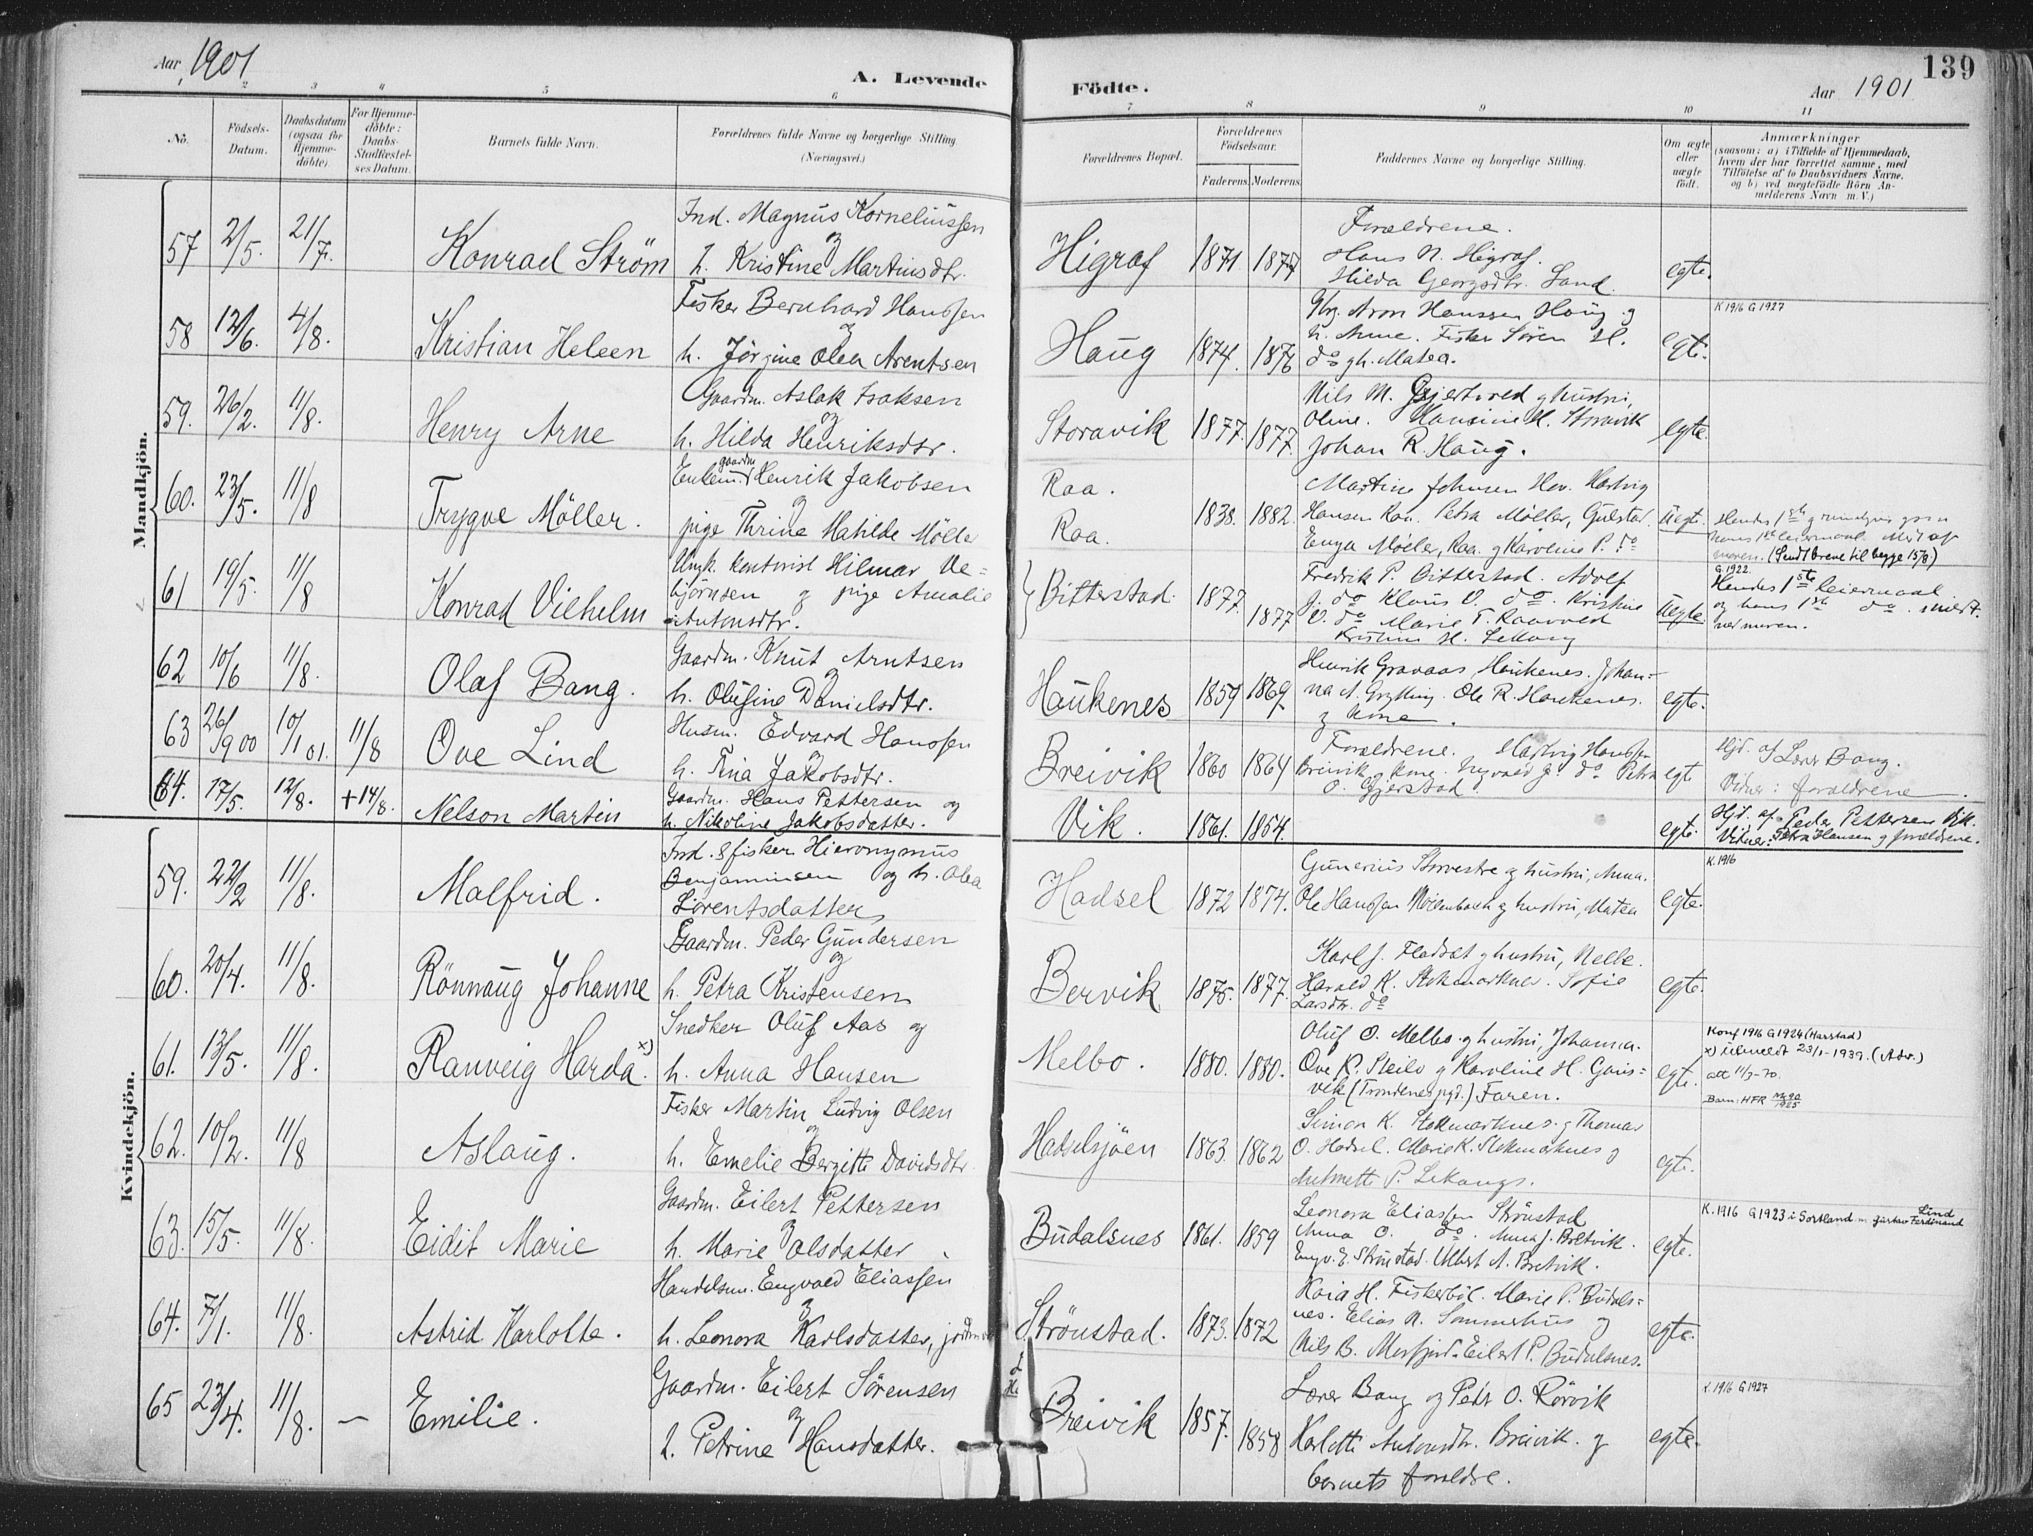 Aar 1901
A. Levende
Födte.
Aar 1901
139
1 2 3 4 5 6 7 8 9 10 11
No.
Födsels-
Datum.
Daabsdatum
(ogsaa for
Hjemme-
döbte).
For Hjemme-
döbte:
Daabs-
Stadfæstel-
ses Datum.
Barnets fulde Navn.
Forældrenes fulde Navne og borgerlige Stilling
(Næringsvei.)
Forældrenes Bopæl.
Forældrenes
Födselsaar.
Faderens. Moderens.
Faddernes Navne og borgerlige Stilling.
Om ægte
eller
uægte
födt.
Anmærkninger
(saasom: a) i Tilfælde af Hjemmedaab,
hvem der har forrettet samme, med
Tilföielse af to Daabsvidners Navne.
og b) ved uægtefödte Börn An-
melderens Navn m. V.)
Mandkjön.
57 2/5. 21/7. Konrad Ström
Ind. Magnus Korneliussen
og
h. Kristine Martinsdtr.
Higraf 1871. 1877
Forældrene.
Hans N. Higraf.
Hilda Georgsdtr. Sand.
egte.
58 12/6. 4/8. Kristian Heleen
Fisker Bernhard Hanssen
og
h. Jörgine Olea Arentsen
Haug 1874. 1876
Gbr. Aron Hanssen Haug og
h. Anne. Fisker Sören H.
do g h. Matea.
egte.
K 1916 G 1927
59. 26/2. 11/8. Henry Arne
Gaardm. Aslak Isaksen
og
h. Hilda Henriksdtr.
Storavik 1877. 1877.
Nils M. Gjertsved g hustru,
Oline. Hansine H. Storavik
Johan R. Haug.
egte.
60. 23/5. 11/8 Trygve Möller.
Enkem. gaardm Henrik Jakobsen
og
pige Thrine Mathilde Mölle
Raa.
Raa.
1838. 1882.
Martine Johnsen Hov. Hartvig
Hansen Petra Møller, Gulstad.
Enga Møeler, Raa. g Karoline P. do
Uegte.
Hendes 1ste
(Sendt breve til begge 15/8)
61 19/5. 11/8 Konrad Vilhelm
Ungk. kontorist Hilmar Ve-
björnsen og pige Amalie
Antonsdtr.
Bitterstad 1877. 1877
Fredrik P. Bitterstad. Adolf
J. do Klaus O. do. Kristine
O. do Marie T. Raavold
Uegte.
G. 1922.
Hendes 1ste leiermaal
og hans 1ste do.
62 10/6 11/8. Olaf Bang.
Gaardm. Knut Arntsen
og
h. Olufine Danielsdtr.
Haukenes 1859 1869.
Henrik Gravaas, Haukenes. Johan-
na A. Ole R. Haukenes.
g kone.
egte.
63 26/9 00 10/1 01. 11/8 Ove Lind
Husm. Edvard Hanssen
og
h. Tina Jakobsdtr.
Breivik 1860 1864
Forældrene. Hartvig Hanssen
Breivik g kone. do Petra
O. Gjerstad.
egte
Hjd. af Lærer Bang.
Vidner: forældrene.
64. 17/5. 12/8. +14/8. Nelson Martin
Gaardm. Hans Pettersen og
h. Nikoline Jakobsdatter.
Vik. 1861. 1864.
egte.
Hjd. af Peder Pettersen Vik.
Vidner: Petra Hansen g forældrene.
Kvindekjön.
59. 22/2 11/8. Malfrid.
Ind. & fisker Hieronymus
Benjaminsen og h. Olea
Lorentsdatter
Hadsel 1872 1874.
Gunerius Storvestre g hustru, Anna.
Ole Hanssen g hustru, Matea
egte.
K. 1916
60. 20/4. 11/8. Rönnaug Johanne
Gaardm. Peder Gundersen
og
h. Petra Kristensen
Bervik 1875. 1877.
Karl J. Fladsæt g hustru, Nelle.
Harald K. Stokmarknes. Sofie
Larsdtr. do
egte.
61. 13/5. 11/8. Ranveig Harda x)
Snedker Oluf Aas og
h. Anna Hansen
Melbo. 1880. 1880.
Oluf O. Melbo g hustru, Johanna.
Ove R. Steilo g Karoline H. Gaus-
vik (Trondenes pgd.) Faren.
egte.
Konf 1916 G 1924 (Harstad)
x) utmeldt 23/1-1939. (Adv.)
att 11/3-70.
Barn: HFR 1925
62. 10/2. 11/8 Aslaug.
Fisker Martin Ludvig Olsen
og
h. Emelie Bergitte Davidsdtr.
Hadselsjöen 1863. 1862
Simon K. Stokmarknes. g Thomas
O. Hadsel. Marie K. Stokmarknes g
Antonette P. Lekangs.
egte.
63. 15/5. 11/8. Eidit Marie
Gaardm. Eilert Pettersen
og
h. Marie Olsdatter
Budalsnes 1861. 1859
Leonora Eliassen Strönstad
Anna O. do. Anna J. Bretvik.
Engv. E. Strönstad. Albert A. Bretvik.
egte.
K. 1916 G 1923 i Sortland m. Gustav Ferdinand Lind
64. 7/1. 11/8. Astrid Karlotte.
Handelsm. Engvald Eliassen
og
h. Leonora Karlsdatter,
Strönstad. 1873. 1872
Kaia H. Fiskerböl. Marie P. Budals-
nes. Elias N. Sommerhus og
Nils B. Morfjord. Eilert P. Budalsnes.
egte.
65 23/4. 11/8. — Emilie.
Gaardm. Eilert Sörensen
og
h. Petrine Hansdatter.
Breivik 1857. 1858
Lærer Bang og Petr O. Rörvik
Karlotte Antonsdtr. Breivik. g
barnets forældre.
egte.
K. 1916 G 1927